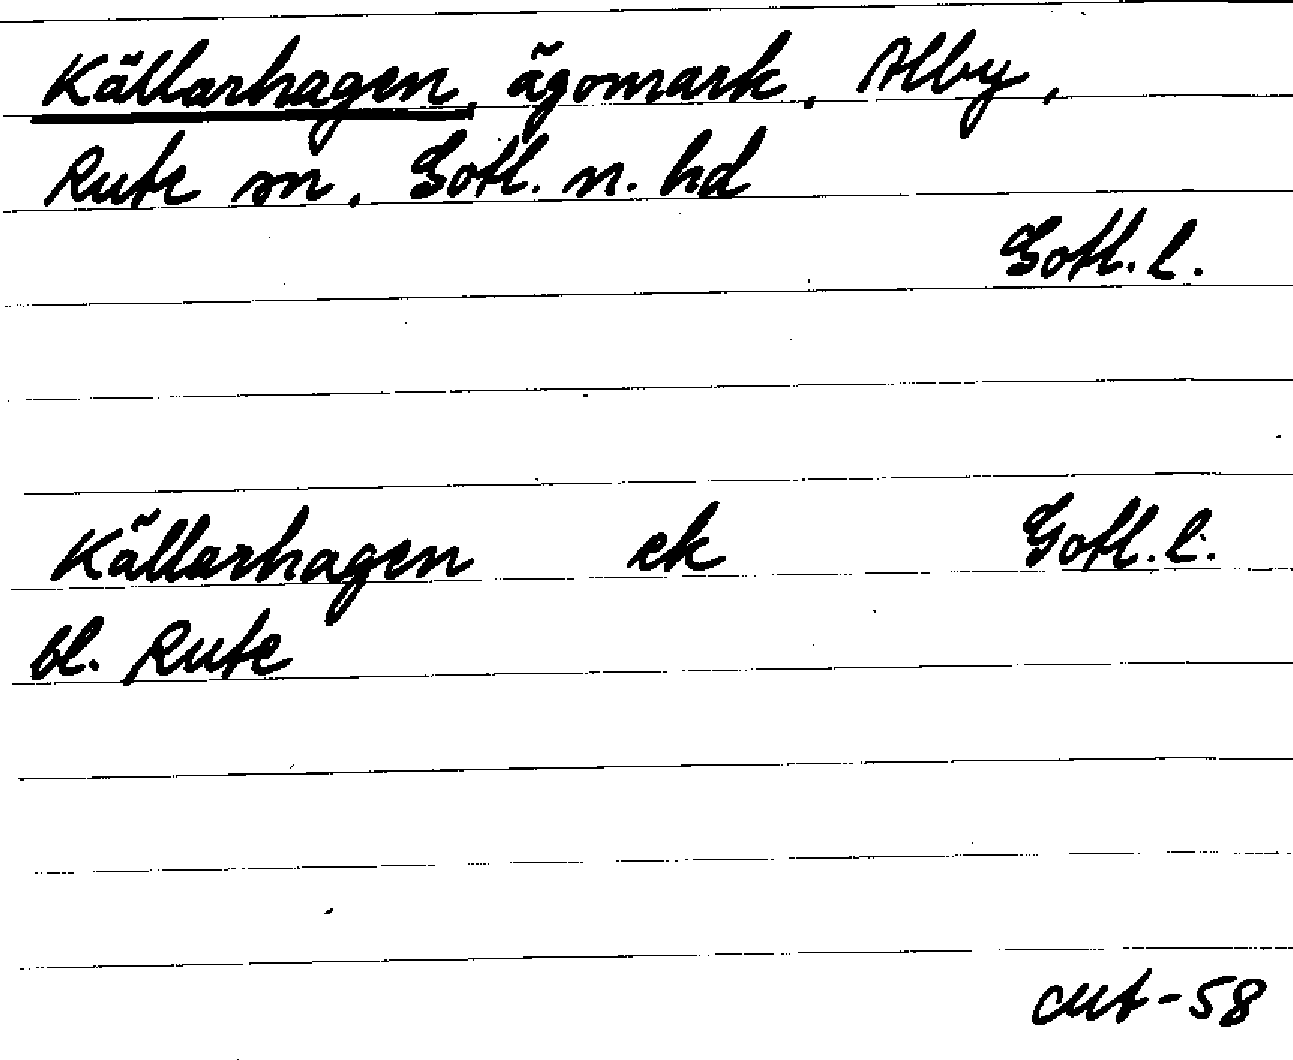 Källarhagen, ägomark, Alby,
Rute sn, Gotl. n. hd
Gotl. l.
Källarhagen ek Gotl. l.
bl. Rute
-58